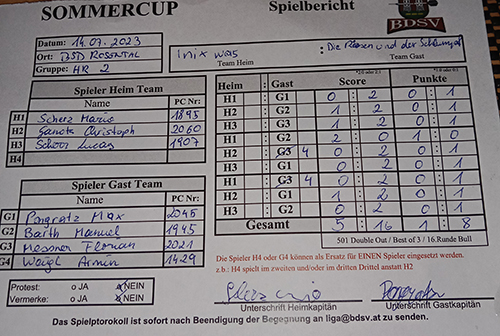 SOMMERCUP Spielbericht BDSV
Datum: 14.07.2023
Ort: BSD ROSENTAL
Gruppe: HR 2
Inix was : Die Riesen und der Schlumpf
Team Heim Team Gast
Spieler Heim Team
Name PC Nr:
H1 Scherz Mario 1895
H2 Christoph 2060
H3 Lucas 1907
H4
Spieler Gast Team
Name PC Nr:
G1 Pongratz Max 2045
G2 Barth Manuel 1945
G3 Messner Florian 2021
G4 Weigl Armin 1429
Protest: o JA NEIN
Vermerke: o JA NEIN
Heim : Gast Score Punkte
H1 : G1 0 : 2 0 : 1
H2 : G2 1 : 2 0 : 1
H3 : G3 1 : 2 0 : 1
H1 : G2 2 : 0 1 : 0
H2 : G3 4 0 : 2 0 : 1
H3 : G1 0 : 2 0 : 1
H1 : G3 4 0 : 2 0 : 1
H2 : G1 1 : 2 0 : 1
H3 : G2 0 : 2 0 : 1
Gesamt 5 : 16 1 : 8
501 Double Out / Best of 3 / 16.Runde Bull
Die Spieler H4 oder G4 können als Ersatz für EINEN Spieler eingesetzt werden.
z.b.: H4 spielt im zweiten und/oder im dritten Drittel anstatt H2
Unterschrift Heimkapitän Unterschrift Gastkapitän
Das Spielptorokoll ist sofort nach Beendigung der Begegnung an liga@bdsv.at zu senden.